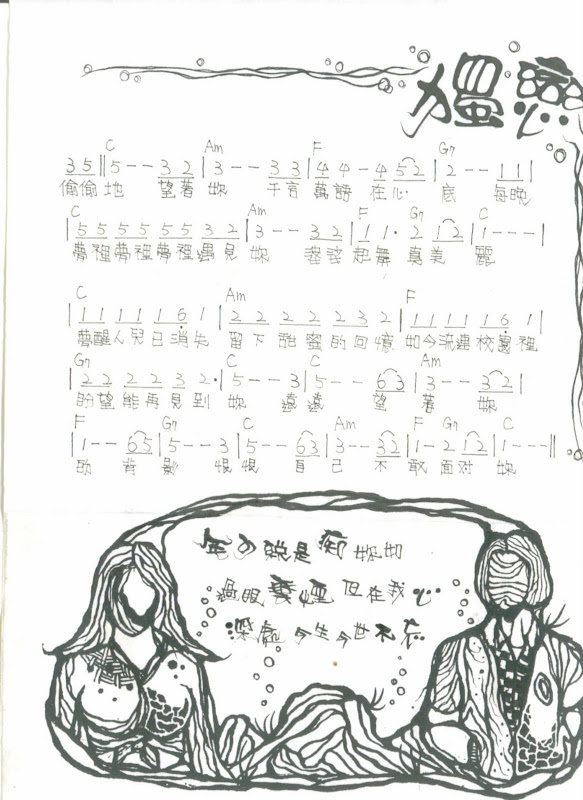 C Am F G7
3 5 ‖ 5 - - 3 2 | 3 - - 3 3 | 4 4 - 4 5 2 | 2 - - 1 1 |
偷偷地 望著妳 千言萬語在心底 每晚
C Am F G7 C
| 5 5 5 5 5 5 3 2 | 3 - - 3 2 | 1 1 · 2 1 2 | 1 - - - |
夢裡夢裡夢裡遇見妳 婆娑起舞真美麗
C Am F
| 1 1 1 1 1 6 1 | 2 2 2 2 2 3 2 | 1 1 1 1 1 6 1 |
夢醒人兒已消失 留下甜蜜的回憶 如今流連校園裡
G7 C C Am
| 2 2 2 2 3 2 · | 5 - - 3 | 5 - - 6 3 | 3 - - 3 2 |
盼望能再見到妳 遠遠望著妳
F G7 C Am F G7 C
| 1 - - 6 5 | 5 - - 3 | 5 - - 6 3 | 3 - - 3 2 | 1 - 2 1 2 | 1 - - - ‖
的背影 恨恨自己不敢面对妳
說是痴 妳如
過眼雲煙 但在我心
深處 今生今世不忘